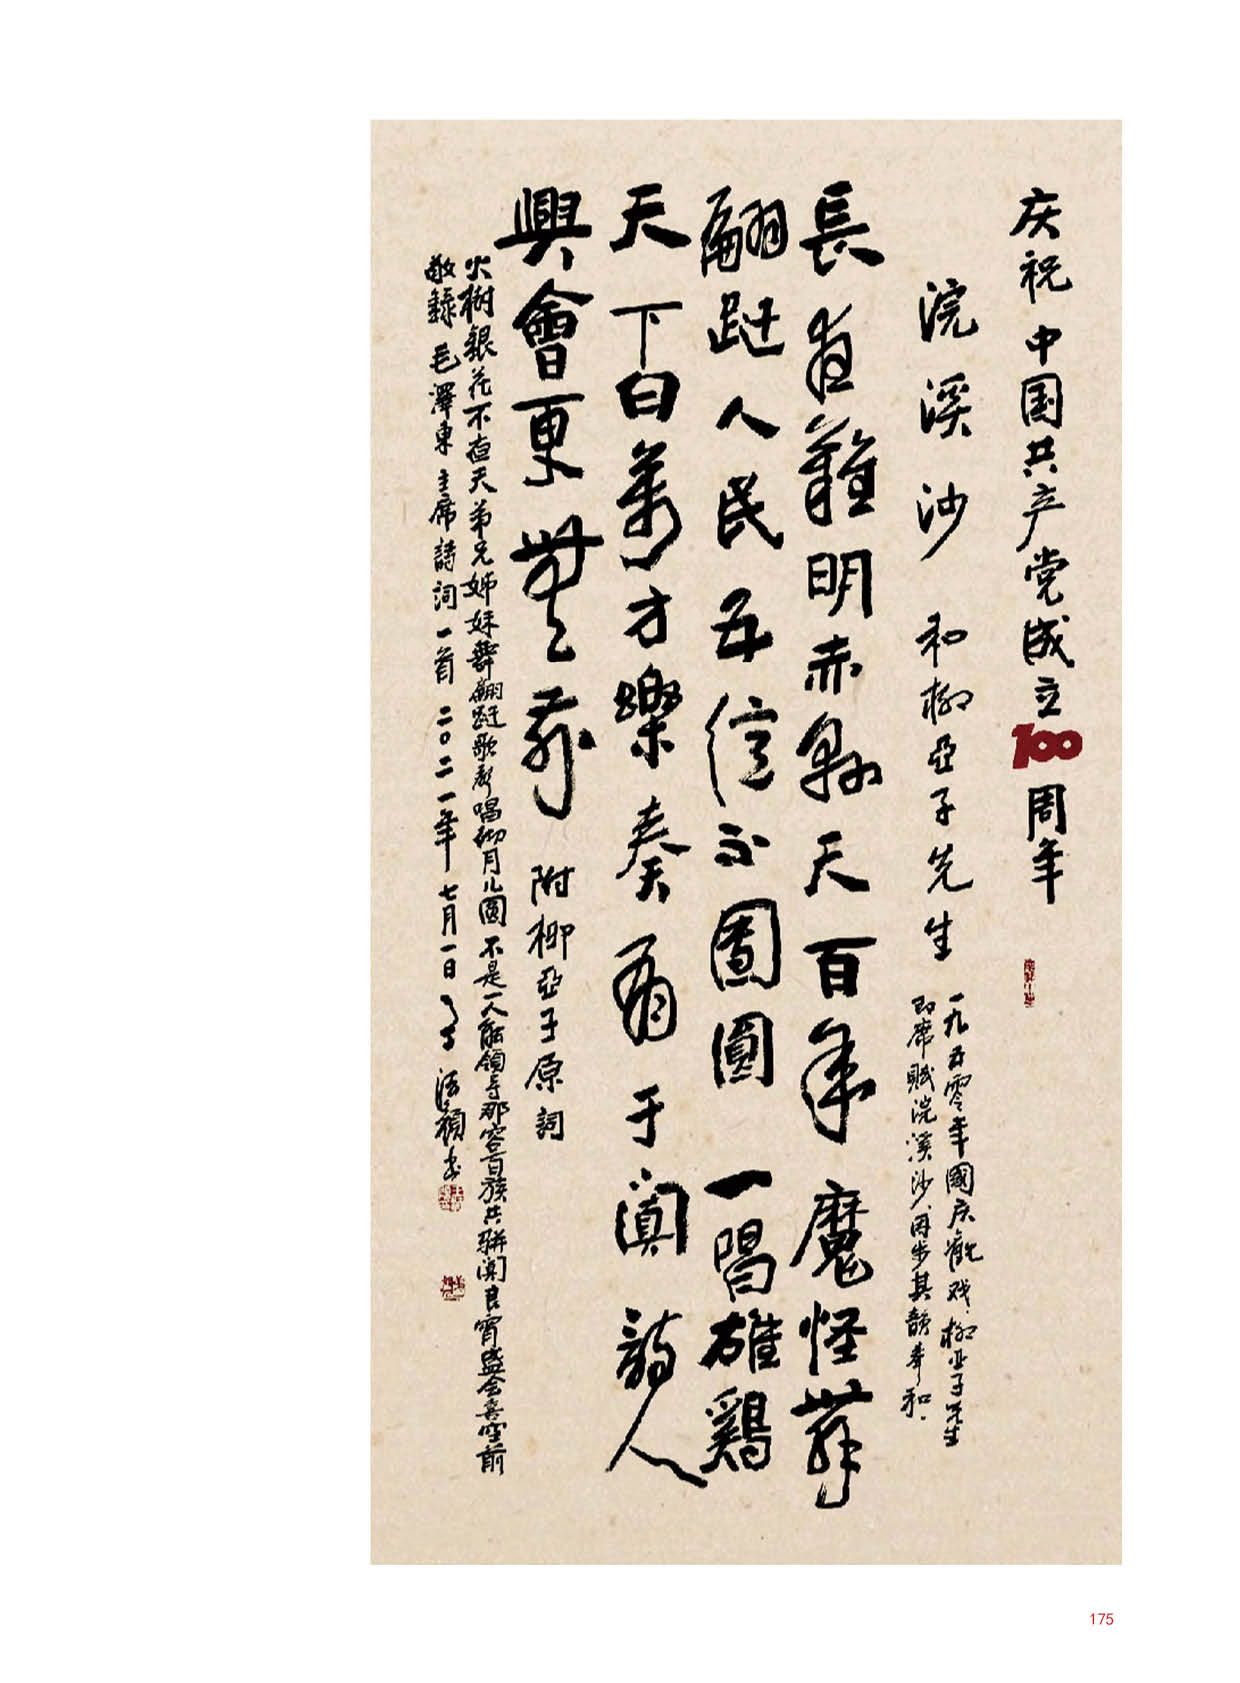 庆祝中国共产党成立100周年
浣溪沙 和柳亞子先生
一九五零年國庆觀戏，柳亚子先生
即席赋浣溪沙，因步其韻奉和．
長夜難明赤縣天百年魔怪舞
翩跹人民五億不團圓一唱雄鷄
天下白萬方樂奏有于阗詩人
興會更無前 附柳亞子原詞
火樹銀花不夜天弟兄姊妹舞翩跹歌声唱彻月儿圓不是一人能領导那容百族共骈阗良宵盛会喜空前
敬錄毛澤東主席詩词一首二〇二一年七月一日
175